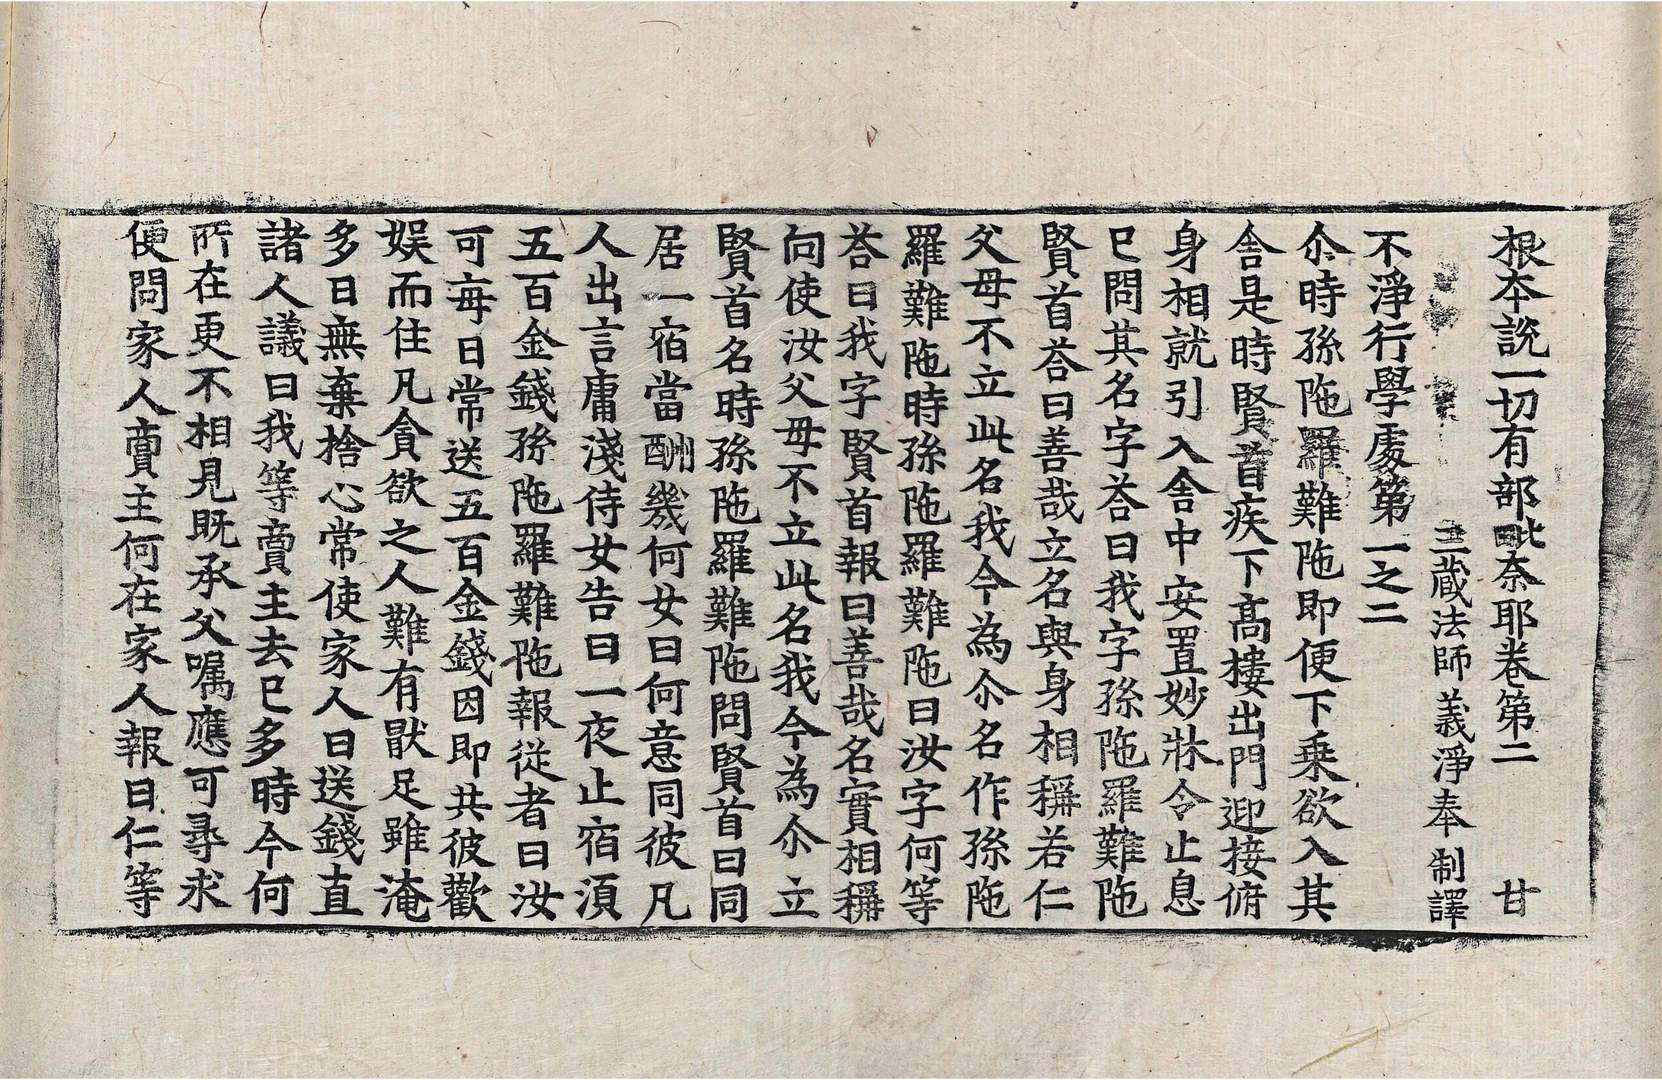 根本說一切有部毗奈耶卷第二 甘
三藏法師 義淨奉 制譯
不淨行學處第一之二
尒時孫陁羅難陁即便下乗欲入其
舍是時賢首疾下髙樓出門迎接俯
身相就引入舍中安置妙牀令止息
已問其名字荅曰我字孫陁羅難陁
賢首荅曰善哉立名與身相稱若仁
父母不立此名我今為尒名作孫陁
羅難陁時孫陁羅難陁曰汝字何等
荅曰我字賢首報曰善哉名實相稱
向使汝父母不立此名我今為尒立
賢首名時孫陁羅難陁問賢首曰同
居一宿當酬幾何女曰何意同彼凡
人出言庸淺侍女告曰一夜止宿湏
五百金錢孫陁羅難陁報従者曰汝
可每日常送五百金錢因即共彼歡
娱而住凡貪欲之人難有猒足雖淹
多日無棄捨心常使家人日送錢直
諸人議曰我等賣主去已多時今何
所在更不相見既承父嘱應可尋求
便問家人賣主何在家人報曰仁等